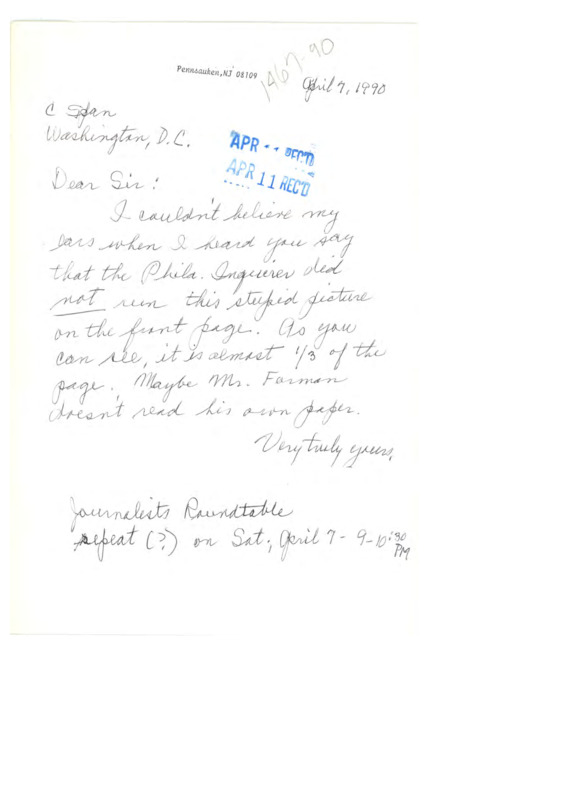 Pennsauken, NJ 08109
1467-90
April 7, 1990
C Span
Washington, D.C.
APR 11 REC'D
APR 11 REC'D
Dear Sir:
I couldn't believe my
ears when I heard you say
that the Phila. Inquirer did
not run this stupid picture
on the front page. As you
can see, it is almost 1/3 of the
page. Maybe Mr. Forman
doesn't read his own paper.
Very truly yours,
Journalists Roundtable
repeat (?) on Sat., April 7 - 9-10:30
PM